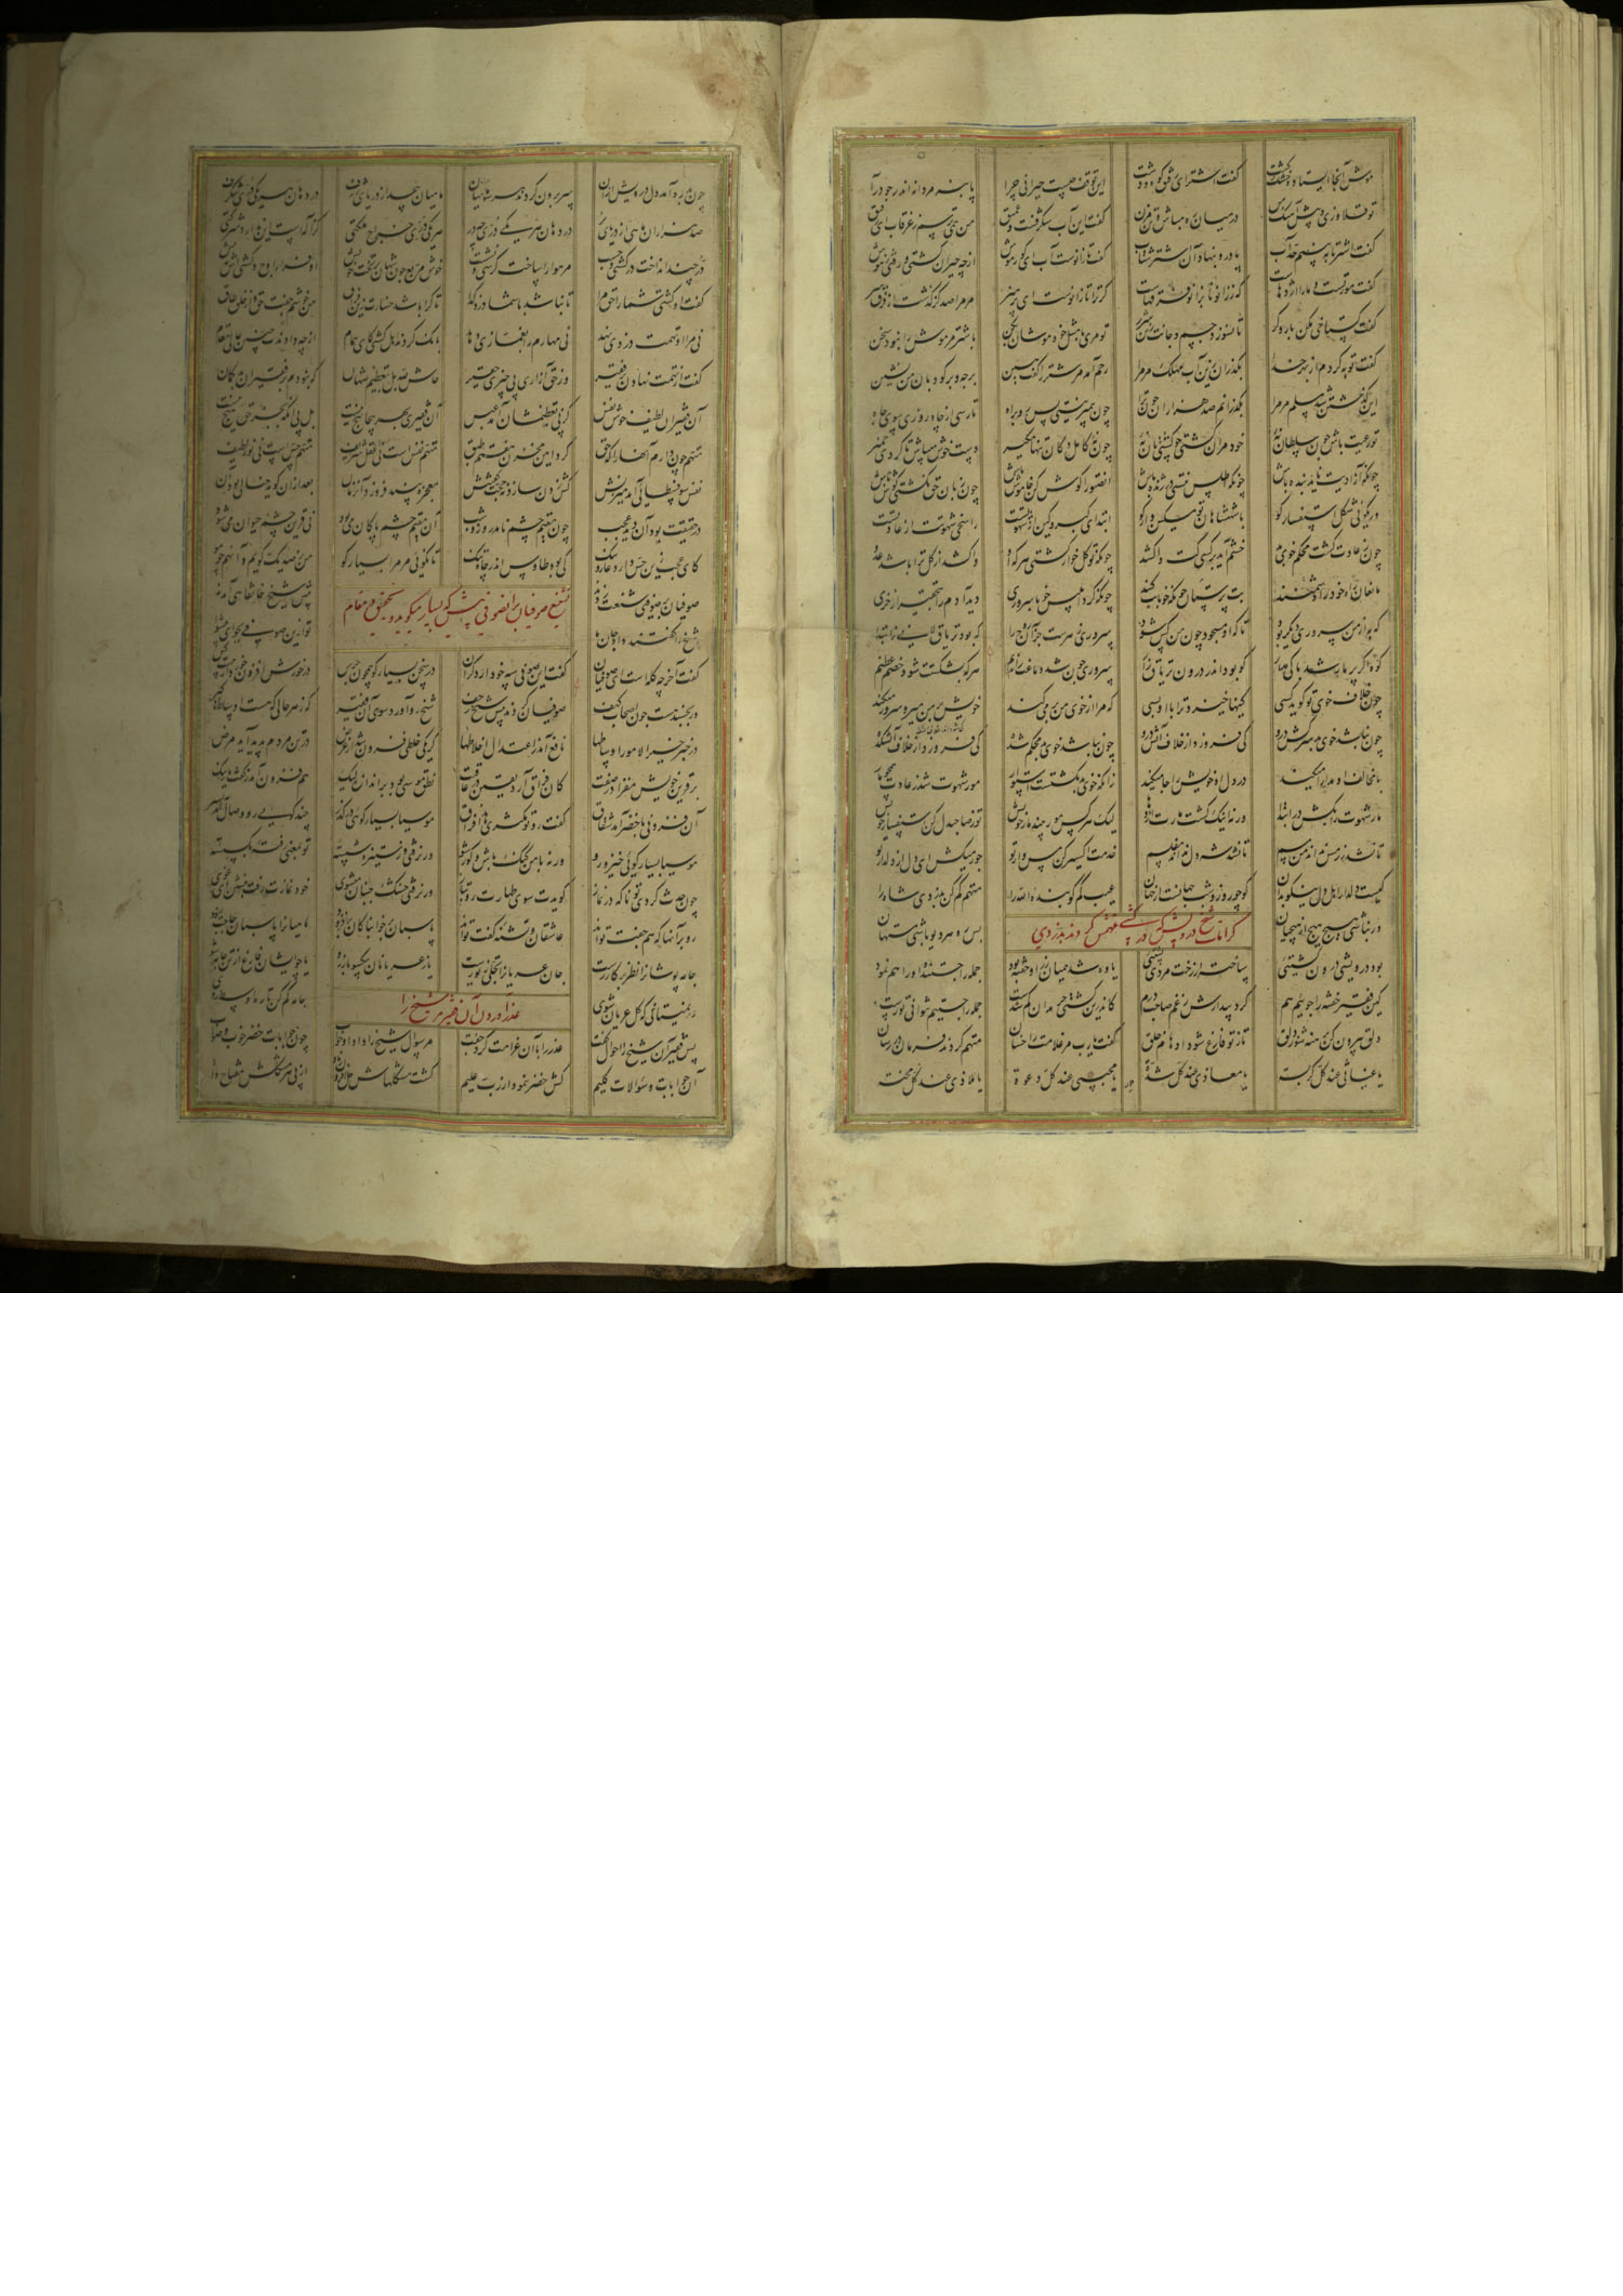 موش آنجا ایستاد و خشک گشت گفت اشتر ای رفیق کوه و دشت این توقف چیست حیرانی چرا پا بنه مردانه اندر جو درآ
تو قلاوزی و پیش آهنگ من در میان ره مباش و تن مزن گفت این آب شگرفست و عمیق من همی ترسم ز غرقاب ای رفیق
گفت اشتر تا ببینم حد آب پا درو بنهاد آن اشتر شتاب گفت تا زانوست آب ای کور موش از چه حیران گشتی و رفتی ز هوش
گفت مور تست و ما را اژدهاست که ز زانو تا بزانو فرقهاست گر ترا تا زانوست ای پر هنر مر مرا صد گز گذشت از فرق سر
گفت گستاخی مکن بار دگر تا نسوزد جسم و جانت زین شرر تو مری با مثل خود موشان بکن با شتر مر موش را نبود سخن
گفت توبه کردم از بهر خدا بگذران زین آب مهلک مر مرا رحم آمد مر شتر را گفت هین برجه و بر کودبان من نشین
این گذشتن شد مسلم مر مرا بگذرانم صد هزاران چون ترا چون پیمبر نیستی پس رو براه تا رسی از چاه روزی سوی جاه
تو رعیت باش چون سلطان نه خود مران کشتی چو کشتیبان نه چون نه کامل دکان تنها مگیر دست خوش میباش تا گردی خمیر
چونکه آزادیت ناید بنده باش چونکه اطلس نیستی در ژنده باش انصتوا را گوش کن خاموش باش چون زبان حق نگشتی گوش باش
ور بگوئی شکل استفسار گو با شهنشاهان تو مسکین وار گو ابتدای کبر و کین از شهوتست راسخی شهوتت از عادتست
چون ز عادت گشت محکم خوی بد خشم آید بر کسی کت واکشد چونکه تو گل خوار گشتی هر که او واکشد از گل ترا باشد عدو
مانعان راه خود را دشمنند بت پرستان چونکه خو با بت کنند چونکه کرد ابلیس خو با سروری دید آدم را بتحقیر از خری
که به از من سروری دیگر بود تا که او مسجود چون من کس شود سروری زهرست جز آن روح را که بود تریاق لانی ز ابتدا
کوه اگر پر مار شد باکی مدار کو بود اندر درون تریاق زار سروری چون شد دماغت را ندیم هر که بشکستت شود خصم عظیم
چون خلاف خوی تو گوید کسی کینها خیزد ترا با او بسی که مرا از خوی من بر می کند خویش بر من میر و سرور می کند
چون نباشد خوی بد سرکش درو کی فروزد از خلاف آتش درو چون نباشد خوی بد محکم شده کی فروزد از خلاف آتشکده
با مخالف او مدارا میکند در دل او خویش را جا میکند زانکه خوی بد بگشتست استوار مور شهوت شد ز عادت همچو مار
مار شهوت را بکش در ابتدا ورنه اینک گشت مارت اژدها لیک هر کس مور بیند مار خویش تو ز صاحبدل کن استفسار خویش
تا نشد زر مس نداند من مسم تا نشد شه دل نداند مفلسم خدمت اکسیر کن مس وار تو جور میکش ای دل از دلدار تو
کیست دلدار اهل دل نیکو بدان کو چو روز و شب جهانست از جهان عیب کم گو بنده الله را متهم کم کن بدزدی شاه را
ور نباشی هیچ هیچ از هیچیان کرامات شیخ درویش که در کشتی متهمش کردند بدزدی
بود درویشی درون کشتیئی ساخته از رخت مردی پشتیئی یاوه شد همیان زر او خفته بود جمله را جستند و او را هم نمود
کین فقیر خفته را جوئیم هم کرد بیدارش ز غم صاحب درم کاندرین کشتی حرمدان گم شدست جمله را جستیم نتوانی تو رست
دلق بیرون کن برهنه شو ز دلق تا ز تو فارغ شود اوهام خلق گفت یارب مر غلامت را خسان متهم کردند فرمان در رسان
یا غیاثی عند کل کربة یا معاذی عند کل شدة یا مجیبی عند کل دعوة یا ملاذی عند کل محنة
چون بدرد آمد دل درویش از آن سر برون کردند هر سو ماهیان ماهیان بیحد از دریای ژرف در دهان هر یکی دری شگرف
صد هزاران ماهی از دریای پر در دهان هر یکی دری چه در هر یکی دری خراج ملکتی کز آله است این ندارد شرکتی
در چند انداخت در کشتی و جست مر هوا را ساخت کرسی و نشست خوش مربع چون شهان بر تخت خویش او فراز اوج و کشتی اش به پیش
گفت او کشتی شما را حق مرا تا نباشد با شما دزد گدا تا کرا باشد خسارت زین فراق من خوشم جفت حق و از خلق طاق
نی مرا او تهمت دزدی نهد نی مهارم را بغمازی دهد بانگ کردند اهل کشتی کای همام از چه دادندت چنین عالی مقام
گفت از تهمت نهادن بر فقیر وز حق آزاری پی چیزی حقیر حاش لله بل ز تعظیم شهان که نبودم در فقیران بدگمان
آن فقیران لطیف خوش نفس کز پی تعظیمشان آمد عبس آن فقیری بهر پیچاپیچ نیست بل پی آنکه بجز حق هیچ نیست
متهم چون دارم آنها را که حق کرد امین مخزن هفتم طبق متهم نفس است نی عقل شریف متهم حس است نی نور لطیف
نفس سوفسطائی آمد میزنش کش زدن سازد نه حجت گفتنش معجزه بیند فروزد آن زمان بعد از آن گوید خیالی بود آن
در حقیقت بود آن دید عجب چون مقیم چشم نامد روز و شب آن مقیم چشم پاکان می بود نی قرین چشم حیوان می شود
کای عجب زین حس دارد عار و ننگ کی بود طاوس اندر چاه تنگ تا نگوئی مر مرا بسیار گو من ز صد یک گویم و آن همچو مو
تشنیع صوفیان بر آن صوفی که پیش شیخ بسیار میگوید
صوفیان بر صوفیی شنعت زدند پیش شیخ خانقاهی آمدند
شیخ را گفتند داد جان ما تو ازین صوفی بجو ای پیشوا
گفت آخر چه گله است ای صوفیان گفت این صوفی سه خو دارد گران در سخن بسیار گو همچون جرس در خورش افزون خورد از بیست کس
ور بخسپد هست چون اصحاب کهف صوفیان کردند پیش شیخ زحف شیخ رو آورد سوی آن فقیر که ز هر حالی که هست اوساط گیر
در خبر خیر الامور اوساطها نافع آمد ز اعتدال اخلاطها گر یکی خلطی فزون شد از عرض در تن مردم پدید آید مرض
بر قرین خویش مفزا در صفت کان فراق آرد یقین در عاقبت نطق موسی بود بر اندازه لیک هم فزون آمد ز گفت یار نیک
آن فزونی با خضر آمد شقاق گفت رو تو مکثری هذا فراق موسیا بسیار گوئی در گذر چند گویی رو وصال آمد بسر
موسیا بسیار گوئی خیز و رو ورنه با من گنگ باش و کور شو ور نرفتی وز ستیزه شسته تو بمعنی رفته بگسسته
چون حدث کردی تو ناگه در نماز گویدت سوی طهارت رو بتاز ور نرفتی خشک جنبان میشوی خود نمازت رفت بنشین ای غوی
رو بر آنها که هم جفت تواند عاشقان و تشنه گفت تواند پاسبان بر خوابناکان بر فزود ماهیان را پاسبان حاجت نبود
جامه پوشان را نظر بر گازرست جان عریان را تجلی زیورست یا ز عریانان بیکسو باز رو یا چو ایشان فارغ از تن جامه شو
ور نمیتانی که کل عریان شوی عذر آوردن آن فقیر مر شیخ را جامه کم کن تا ره اوسط روی
پس فقیر آن شیخ را احوال گفت عذر را با آن غرامت کرد جفت مر سؤال شیخ را داد او جواب چون جوابات خضر خوب و صواب
آن جوابات سؤالات کلیم کش خضر بنمود از رب علیم گشت مشکلهاش حل از پی هر مشکلش مفتاح داد